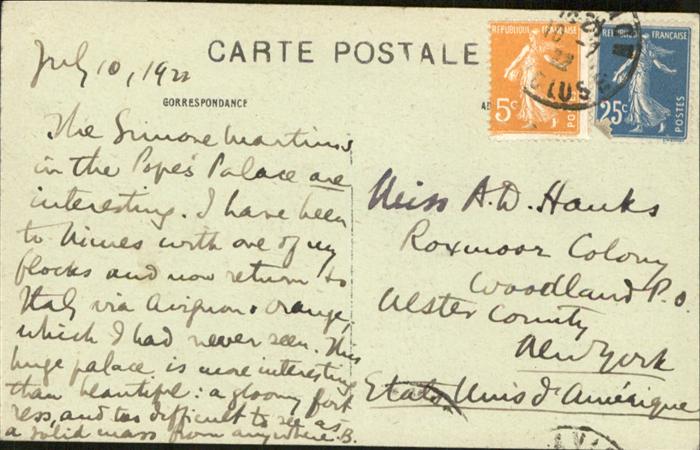 July 10, 1922
CARTE POSTALE
CORRESPONDANCE
RÉPUBLIQUE FRANÇAISE
5c
POSTES
RÉPUBLIQUE FRANÇAISE
25c
POSTES
The Simone Martinis
in the Pope's Palace are
interesting. I have been
to Nimes with one of my
flocks and now return to
Italy via Avignon & Orange,
which I had never seen. This
huge palace is more interesting
than beautiful: a gloomy fort
ress, and too difficult to see as
a solid mass from anywhere. B.
Miss A. D. Hanks
Roxmoor Colony
Woodland P.O
Ulster County
New York
Etats Unis d'Amérique